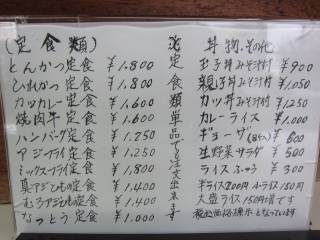 (定食類)
とんかつ定食 ¥1.800
ひれかつ定食 ¥1.800
カツカレー定食 ¥1.600
焼肉牛定食 ¥1.600
ハンバーグ定食 ¥1.250
アジフライ定食 ¥1.250
ミックスフライ定食 ¥1,800
真アジたたき定食 ¥1.400
むろアジたたき定食 ¥1.400
なっとう定食 ¥1.000
定食類単品でも注文出来ます
丼物.その他
玉子丼みそ汁付 ¥900
親子丼みそ汁付 ¥1.050
カツ丼みそ汁付 ¥1,250
カレーライス ¥1.000
ギョーザ ¥600
生野菜サラダ ¥500
ライス ふつう ¥300
半ライス200円 小ライス150円
大盛ライス150円増です
税込価格表示となっています